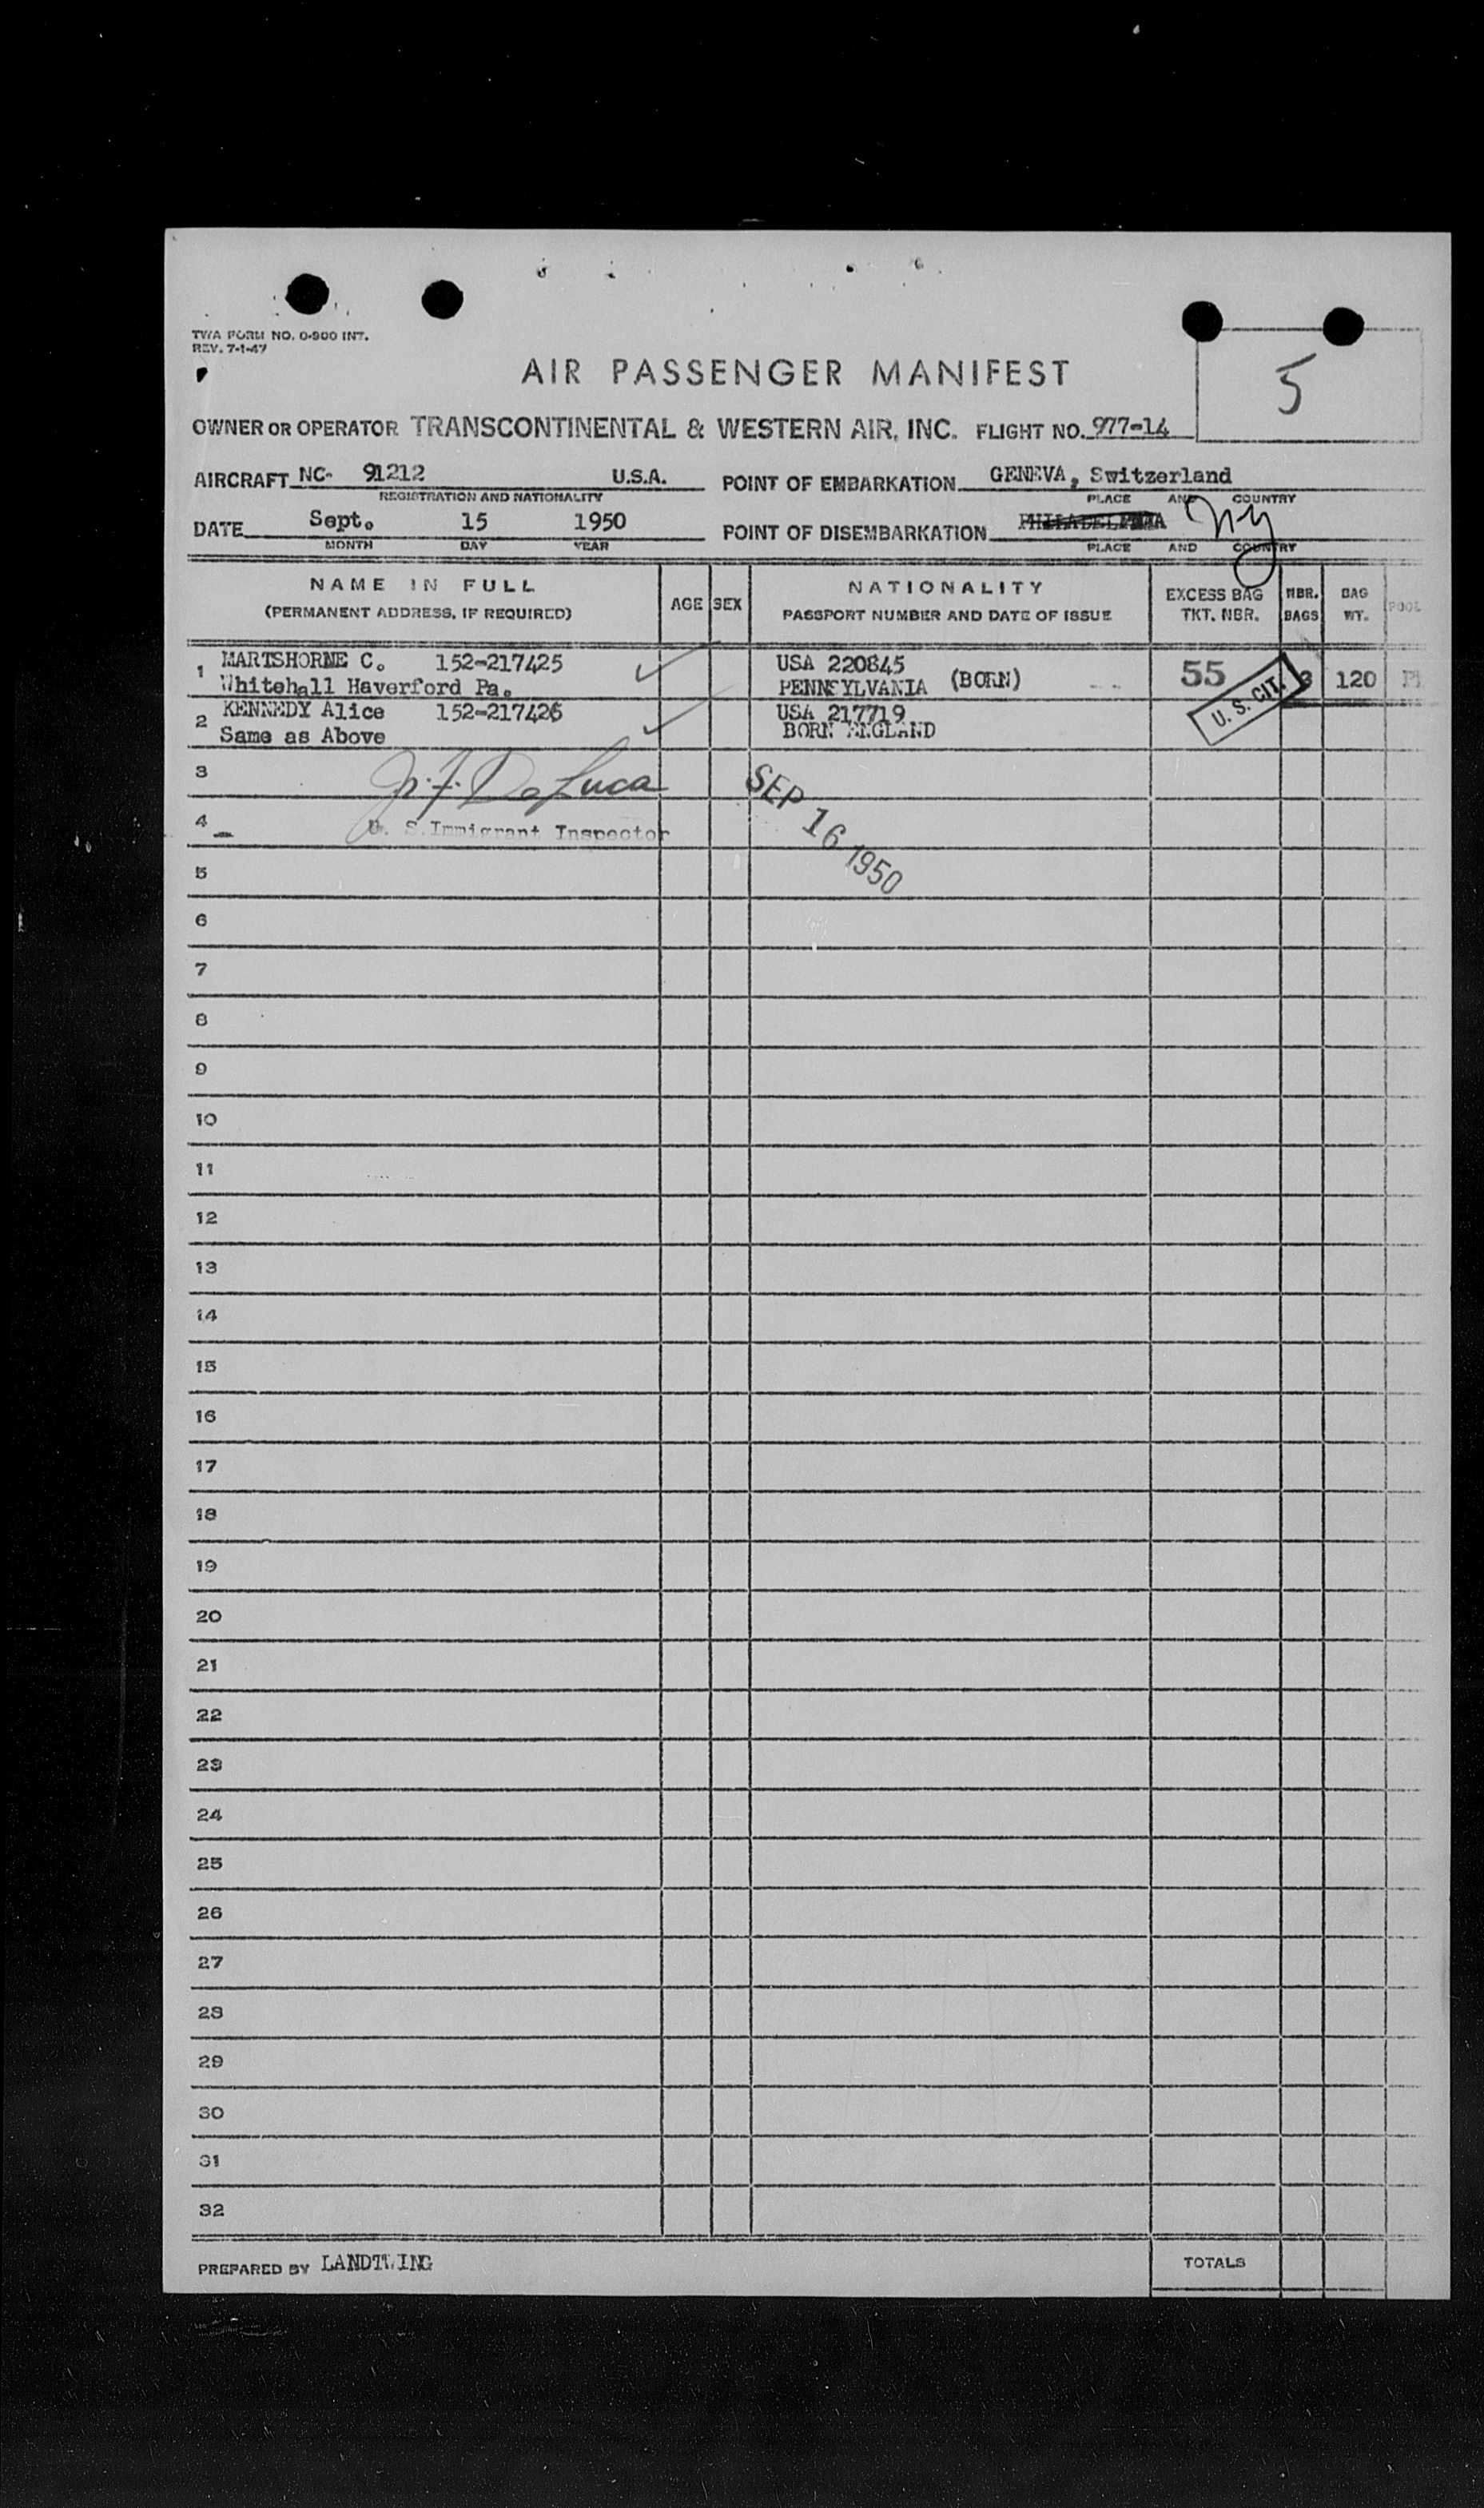 TWA FORM NO. 0-900 INT.
REV. 7-1-47
5
AIR PASSENGER MANIFEST
OWNER OR OPERATOR TRANSCONTINENTAL & WESTERN AIR, INC. FLIGHT NO. 977-14
AIRCRAFT NC- 91212 U.S.A. POINT OF EMBARKATION GENEVA, Switzerland
REGISTRATION AND NATIONALITY PLACE AND COUNTRY
DATE Sept. 15 1950 POINT OF DISEMBARKATION PHILADELPHIA NY
MONTH DAY YEAR PLACE AND COUNTRY
NAME IN FULL
(PERMANENT ADDRESS, IF REQUIRED)
AGE SEX
NATIONALITY
PASSPORT NUMBER AND DATE OF ISSUE
EXCESS BAG
TKT. NBR.
NBR.
BAGS
BAG
WT.
POOL
1 MARTSHORNE C. 152-217425 USA 220845
Whitehall Haverford Pa. PENNSYLVANIA (BORN) 55 3 120
U. S. CIT.
2 KENNEDY Alice 152-217426 USA 217719
Same as Above BORN ENGLAND
3 De Luca
SEP 16 1950
4 U. S. Immigrant Inspector
5
6
7
8
9
10
11
12
13
14
15
16
17
18
19
20
21
22
23
24
25
26
27
28
29
30
31
32
PREPARED BY LANDTWING TOTALS